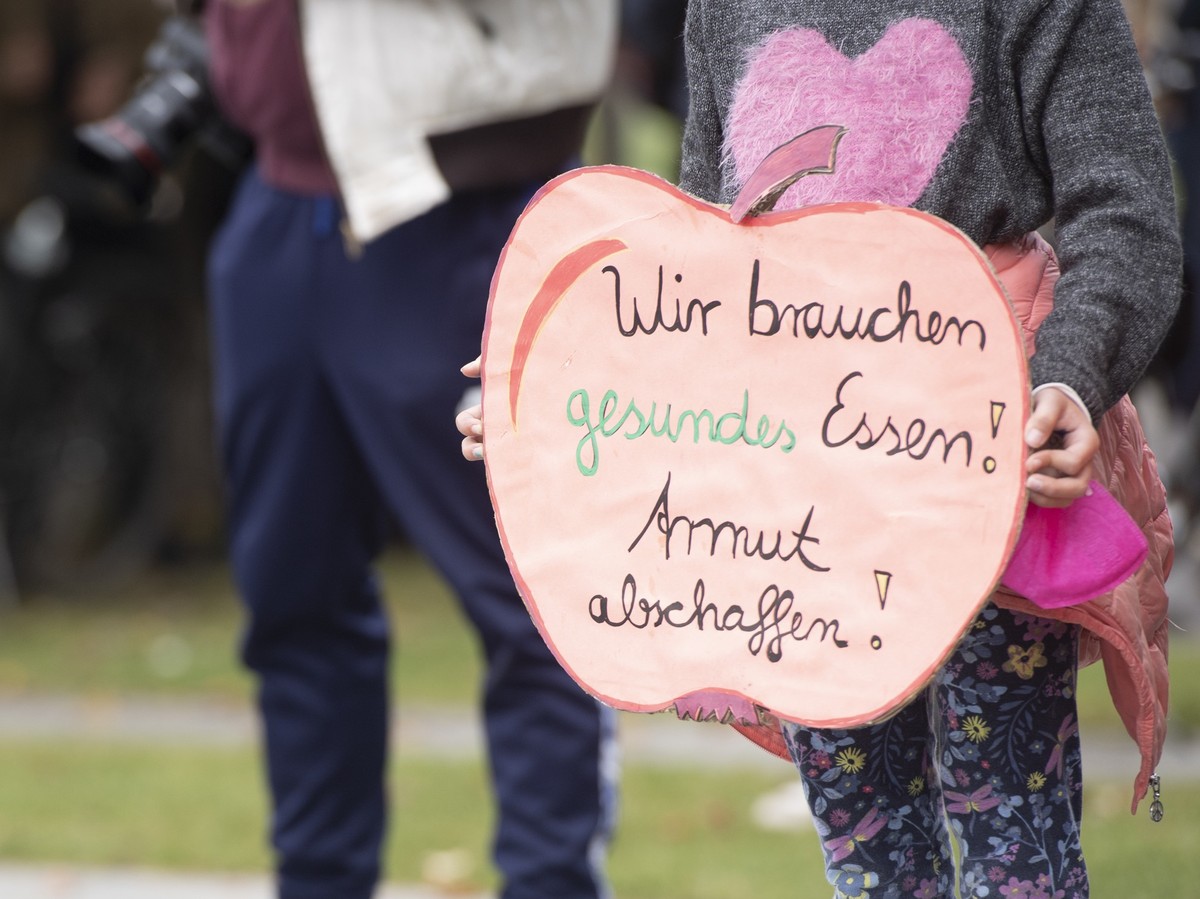 Wir brauchen
gesundes Essen!
Armut
abschaffen!